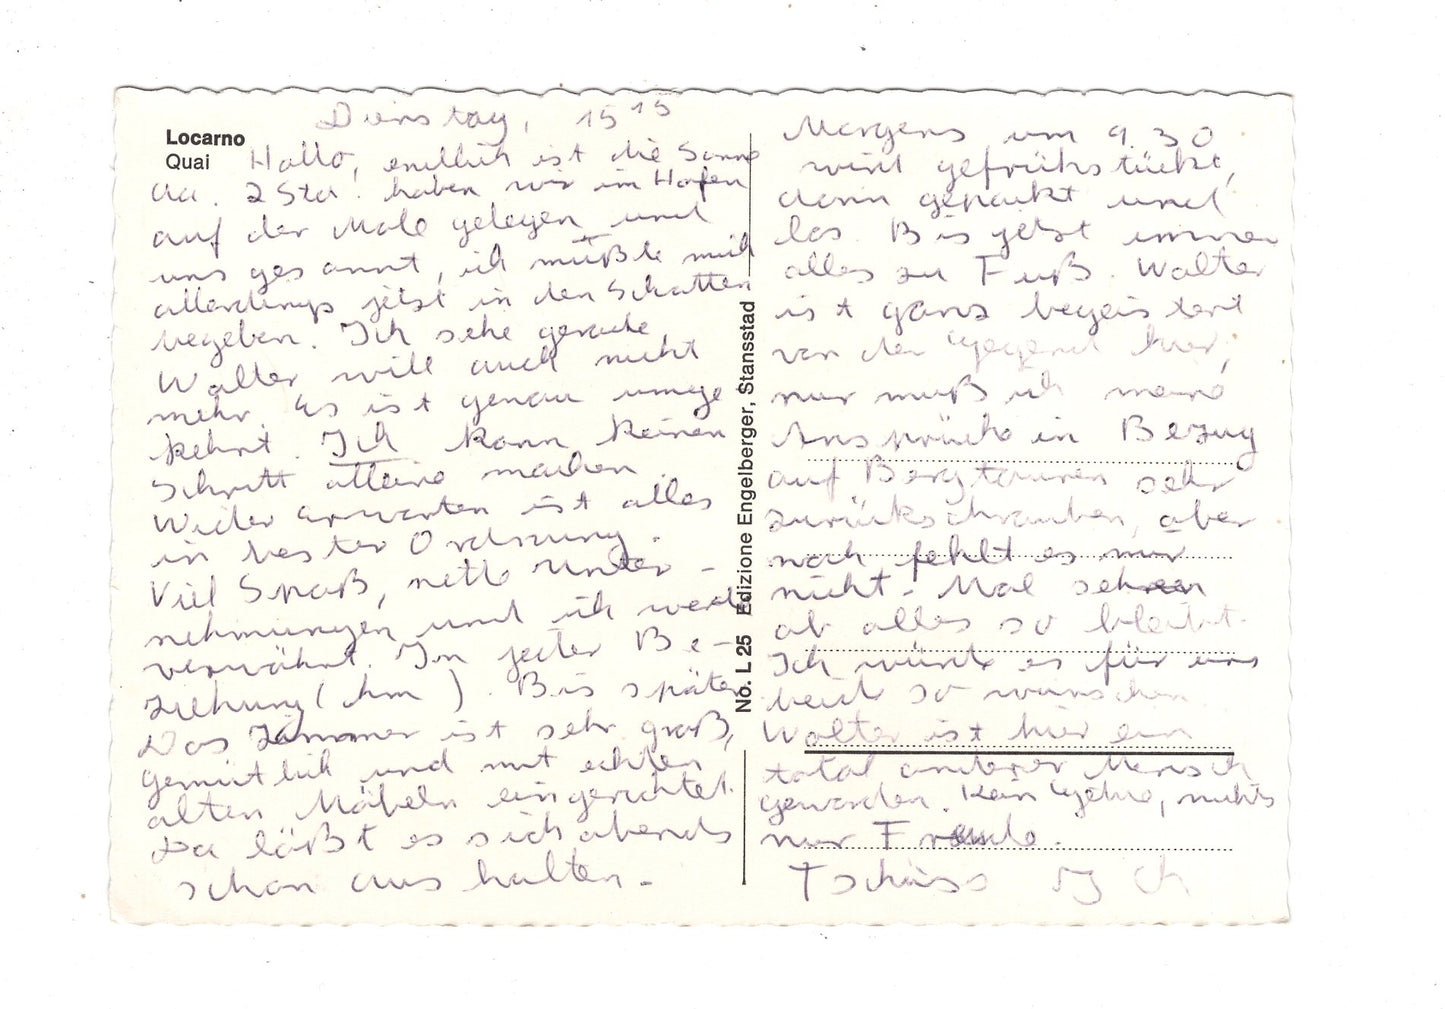 Locarno
Quai
Dienstag, 15 15
Hallo, endlich ist die Sonne
da. 2 Std. haben wir im Hafen
auf der Mole gelegen und
uns gesonnt, ich müßte mich
allerdings jetzt in den Schatten
begeben. Ich sehe gerade,
Walter will auch nicht
mehr. Es ist genau umge
kehrt. Ich kann keinen
Schritt alleine machen.
Wider Erwarten ist alles
in bester Ordnung.
Viel Spaß, nette Unter-
nehmungen und ich werde
verwöhnt. In jeder Be-
ziehung (hm). Bis später
Das Zimmer ist sehr groß,
gemütlich und mit echten
alten Möbeln eingerichtet.
Da läßt es sich abends
schon aushalten.
No. L 25 Edizione Engelberger, Stansstad
Morgens um 9.30
wird gefrühstückt,
dann gepackt und
los. Bis jetzt immer
alles zu Fuß. Walter
ist ganz begeistert
von der Gegend hier,
nur muß ich meine
Ansprüche in Bezug
auf Bergtouren sehr
zurückschrauben, aber
noch fehlt es mir
nicht. Mal sehen
ob alles so bleibt.
Ich würde es für uns
beide so wünschen
Walter ist hier ein
total anderer Mensch
geworden. Kein, nichts
nur Freude.
Tschüss Ich